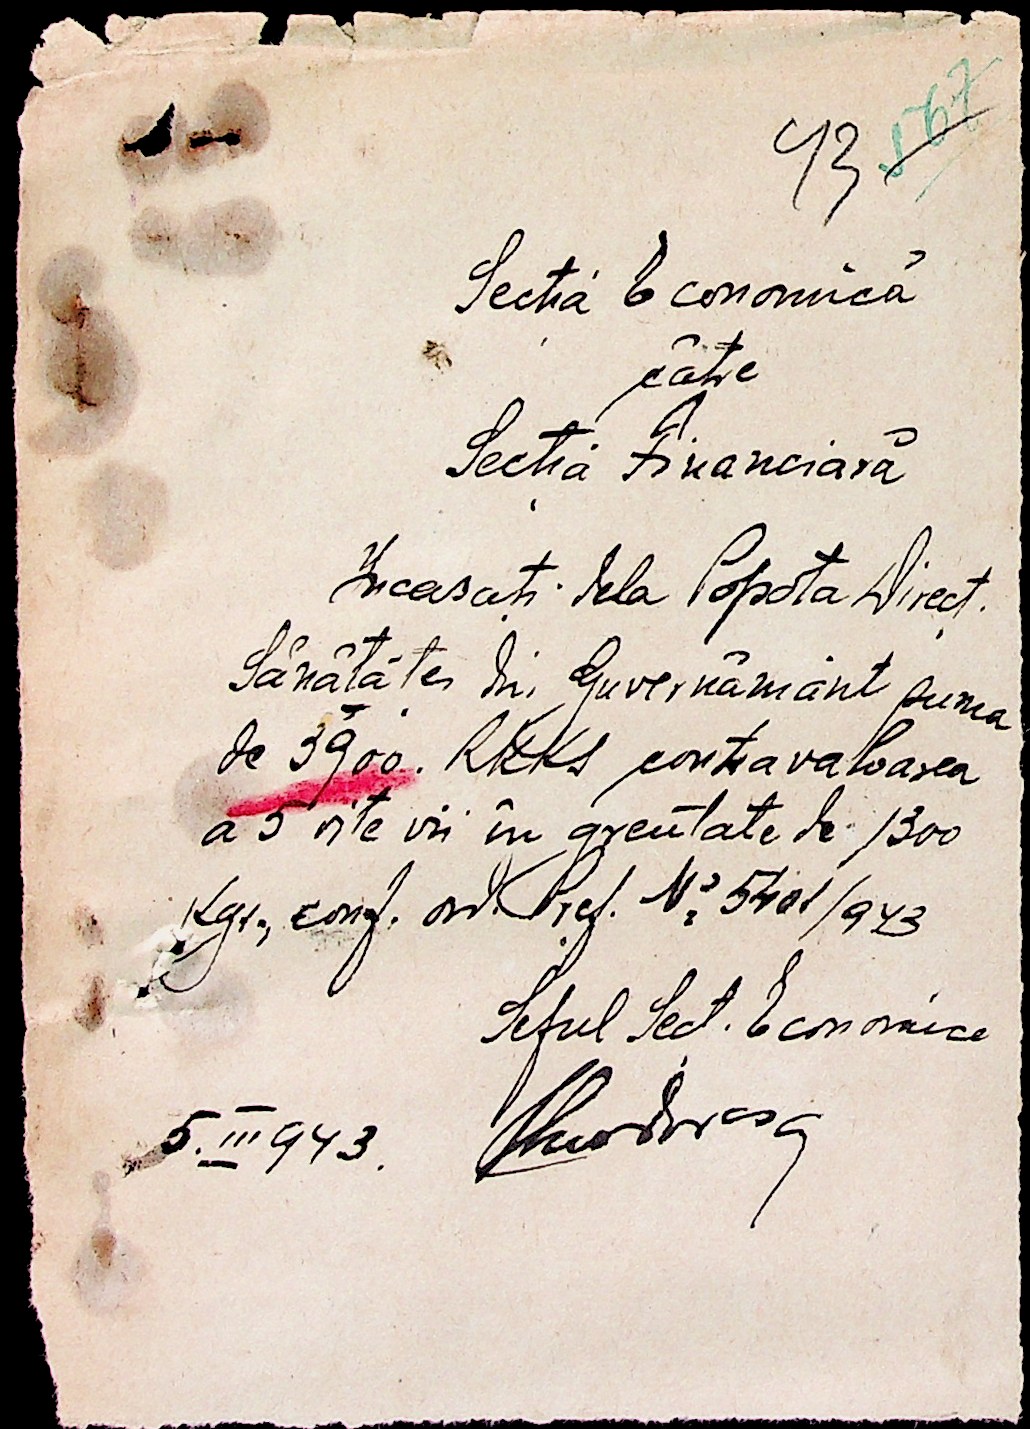 43 567
Secția Economică
cătte
Secția Financiară
Încasați dela Popota Direct.
Sănătăței din Guvernământ suma
de 3900. RKKS contravaloarea
a 5 vite vii în greutate de 1300
Kgr., conf. ord. Pref. Nº 5401/943
Șeful Sect. Economice
5.III 943.